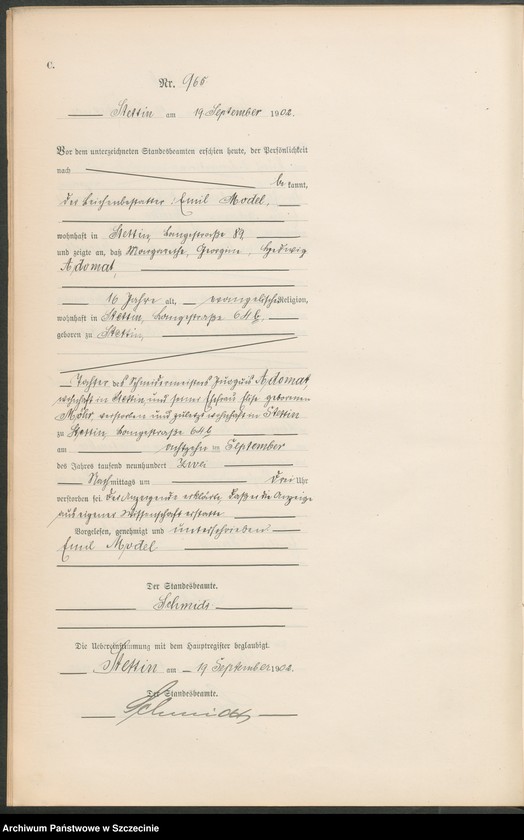 C.
Nr. 965
Stettin am 19 September 1902.
Vor dem unterzeichneten Standesbeamten erschien heute, der Persönlichkeit
nach
be kannt,
der Leichenbestatter Emil Model,
wohnhaft in Stettin, Langestraße 89,
und zeigte an, daß Margarethe, Georgine, Hedwig
Adomat,
16 Jahre alt, evangelischer Religion,
wohnhaft in Stettin, Langestraße 64b,
geboren zu Stettin,
Tochter des Schneidermeisters Adomat
wohnhaft in Stettin und seiner Ehefrau Else geborenen
Möhr, verstorben und zuletzt wohnhaft in Stettin
zu Stettin, Langestraße 64b
am achtzehn ten September
des Jahres tausend neunhundert zwei
Nachmittags um drei Uhr
verstorben sei. Der Anzeigende erklärte, daß er die Anzeige
aus eigener Wissenschaft erstatte
Vorgelesen, genehmigt und unterschrieben
Emil Model
Der Standesbeamte.
Schmidt
Die Uebereinstimmung mit dem Hauptregister beglaubigt.
Stettin am 19 September 1902.
Der Standesbeamte.
Schmidt
Archiwum Państwowe w Szczecinie